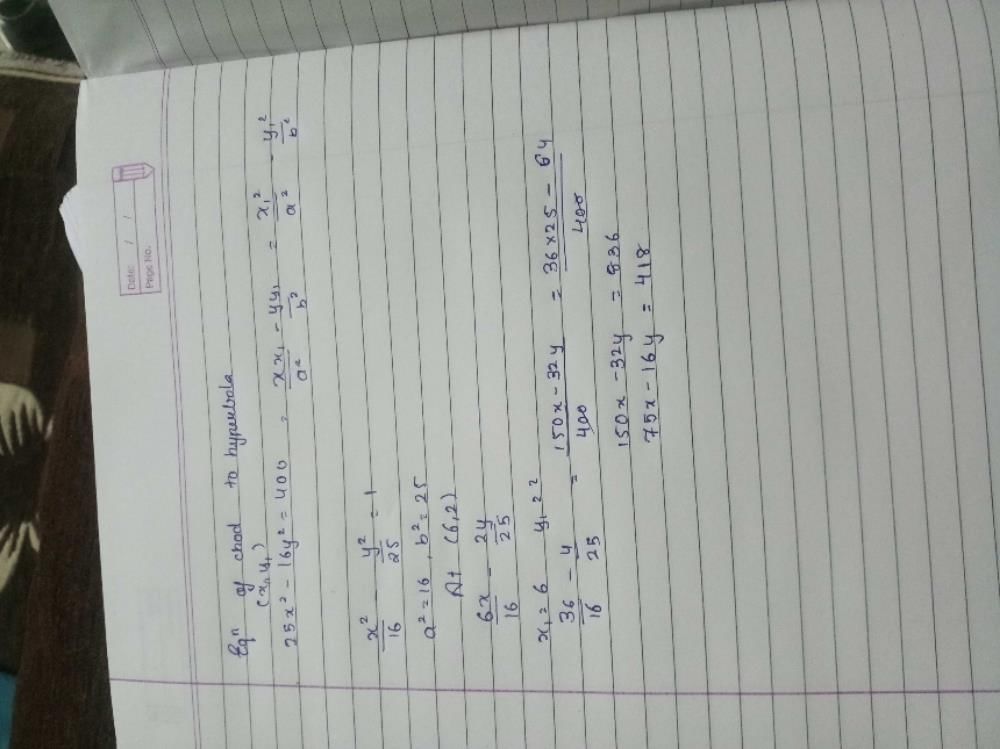 Date: / /
Page No.
Eqⁿ of chod to hyperbola
(x₁, y₁)
25x² - 16y² = 400 , xx₁/a² - yy₁/b² = x₁²/a² - y₁²/b²
x²/16 - y²/25 = 1
a² = 16, b² = 25
At (6,2)
6x/16 - 2y/25
x₁ = 6 y₁ 2 ²
36/16 - 4/25 = 150x - 32y/400 = 36×25 - 64/400
150x - 32y = 836
75x - 16y = 418